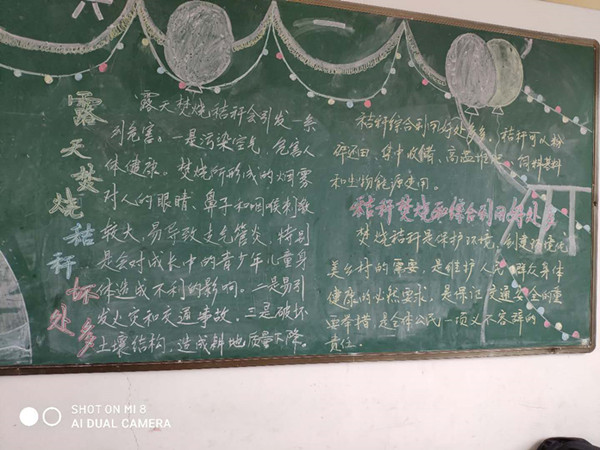 六
露天焚烧秸秆坏处多
露天焚烧秸秆会引发一系
列危害。一是污染空气,危害人
体健康。焚烧所形成的烟雾
对人的眼睛、鼻子和咽喉刺激
较大,易导致支气管炎,特别
是会对成长中的青少年儿童身
体造成不利的影响。二是易引
发火灾和交通事故,三是破坏
土壤结构,造成耕地质量下降。
秸秆综合利用好处多多,秸秆可以粉
碎还田、集中收储、高温堆肥、饲料基料
和生物能源使用。
秸秆焚烧和综合利用好处多
焚烧秸秆是保护环境,创建
美乡村的需要,是维护人民群众身体
健康的必然要求,是保证交通安全的重
要举措,是全体公民一项义不容辞的
责任。
SHOT ON MI 8
AI DUAL CAMERA